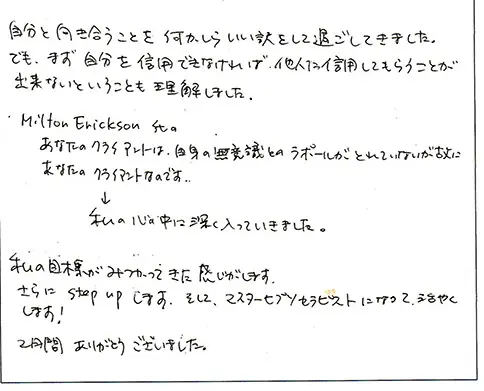 自分と向き合うことを何かしらいい訳をして過ごしてきました。
でも、まず自分を信用できなければ、他人に信用してもらうことが
出来ないということも理解しました。
Milton Erickson 氏の
あなたのクライアントは、自身の無意識とのラポールがとれていないが故に
あなたのクライアントなのです。
↓
私の心の中に深く入っていきました。
私の目標がみつかってきた感じがします。
さらに step up します。そして、マスターセラピストになって、
します!
2日間 ありがとうございました。